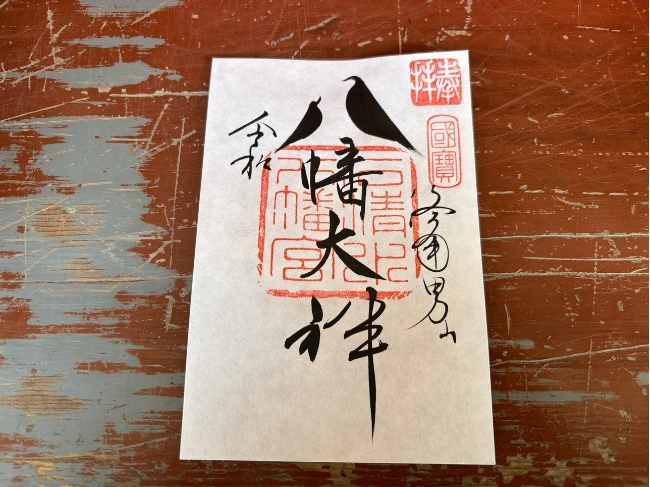 奉拝
國寳
やわた男山
八幡大神
石清水八幡宮
令和